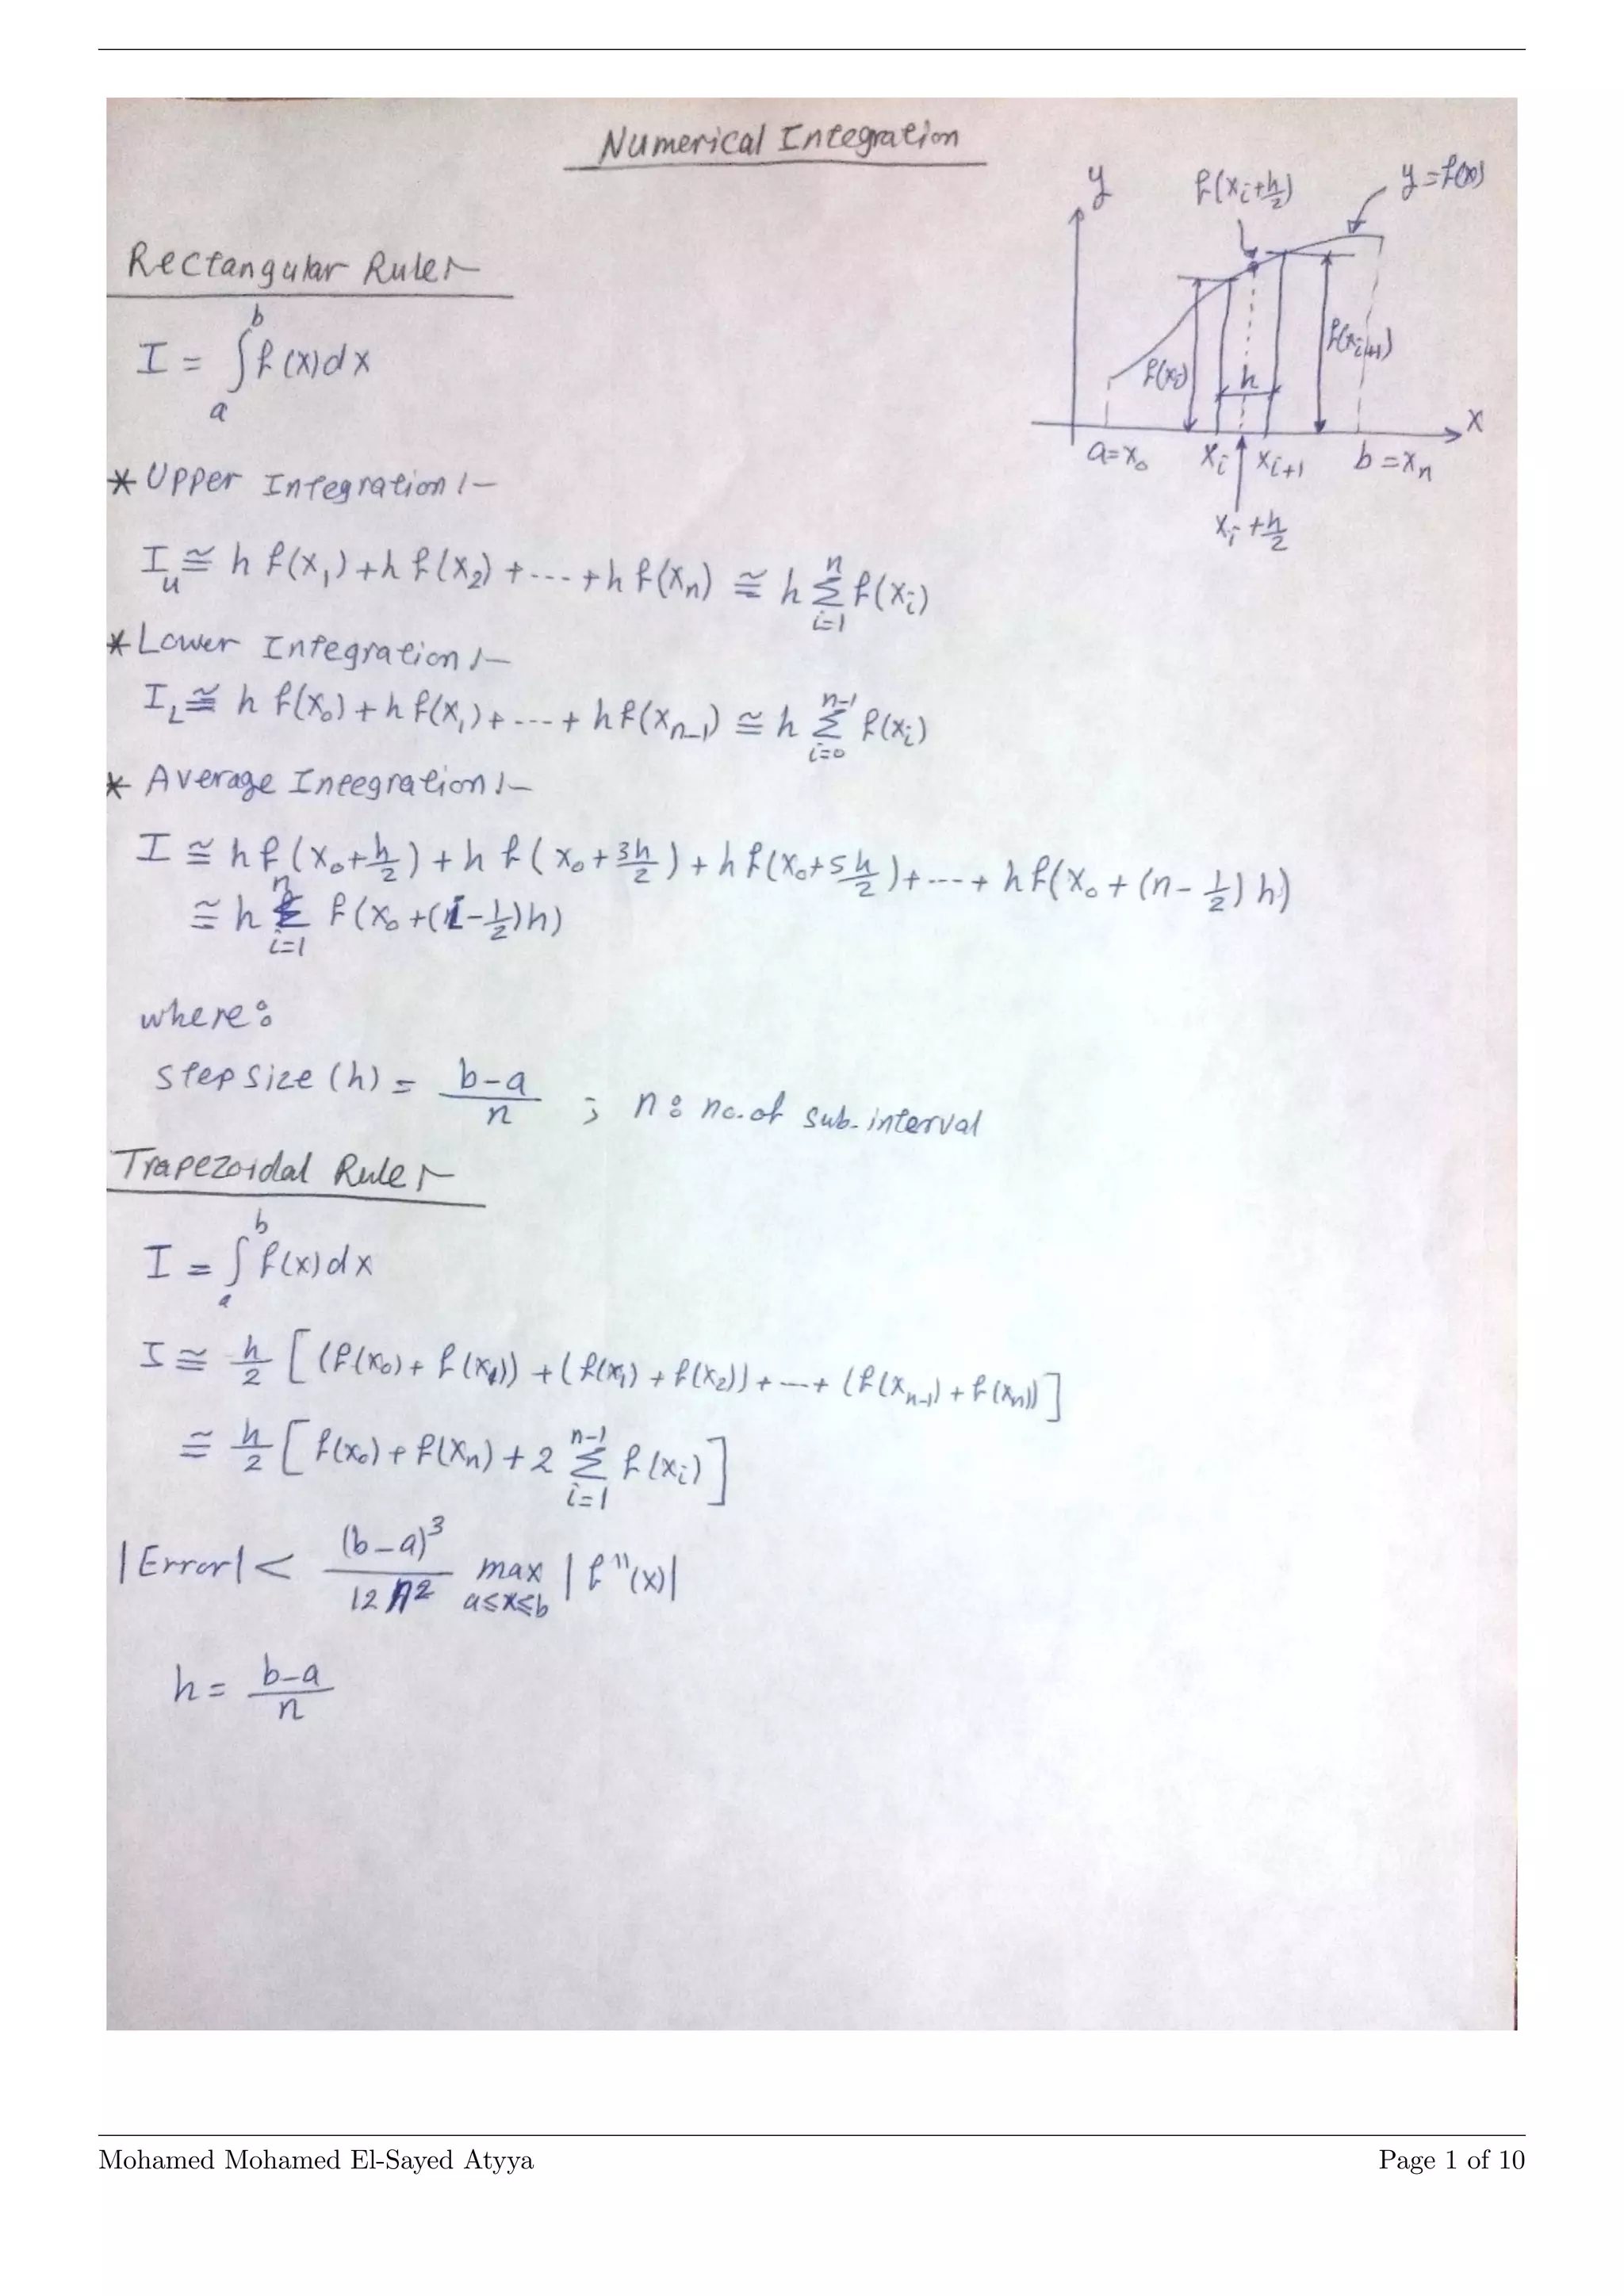 Numerical Integration
y
f(xi+h/2)
y=f(x)
f(xi)
h
f(xi+1)
x
a=x₀ xi xi+1 b=xn
xi+h/2
Rectangular Rule:-
I = ∫ₐᵇ f(x)dx
* Upper Integration:-
Iu ≅ h f(x₁)+h f(x₂)+---+h f(xn) ≅ h Σ_{i=1}^{n} f(xi)
* Lower Integration:-
IL ≅ h f(x₀)+h f(x₁)+---+ hf(x_{n-1}) ≅ h Σ_{i=0}^{n-1} f(xi)
* Average Integration:-
I ≅ hf(x₀+h/2)+h f(x₀+3h/2)+h f(x₀+5h/2)+---+ hf(x₀+(n-1/2)h)
≅ h Σ_{i=1}^{n} f(x₀+(i-1/2)h)
where:
step size (h) = (b-a)/n ; n: no. of sub-interval
Trapezoidal Rule:-
I = ∫ₐᵇ f(x)dx
I ≅ h/2 [(f(x₀)+f(x₁))+(f(x₁)+f(x₂))+---+(f(x_{n-1})+f(xn))]
≅ h/2 [f(x₀)+f(xn)+2 Σ_{i=1}^{n-1} f(xi)]
|Error| < (b-a)³/12n² max_{a≤x≤b} |f''(x)|
h = (b-a)/n
Mohamed Mohamed El-Sayed Atyya Page 1 of 10